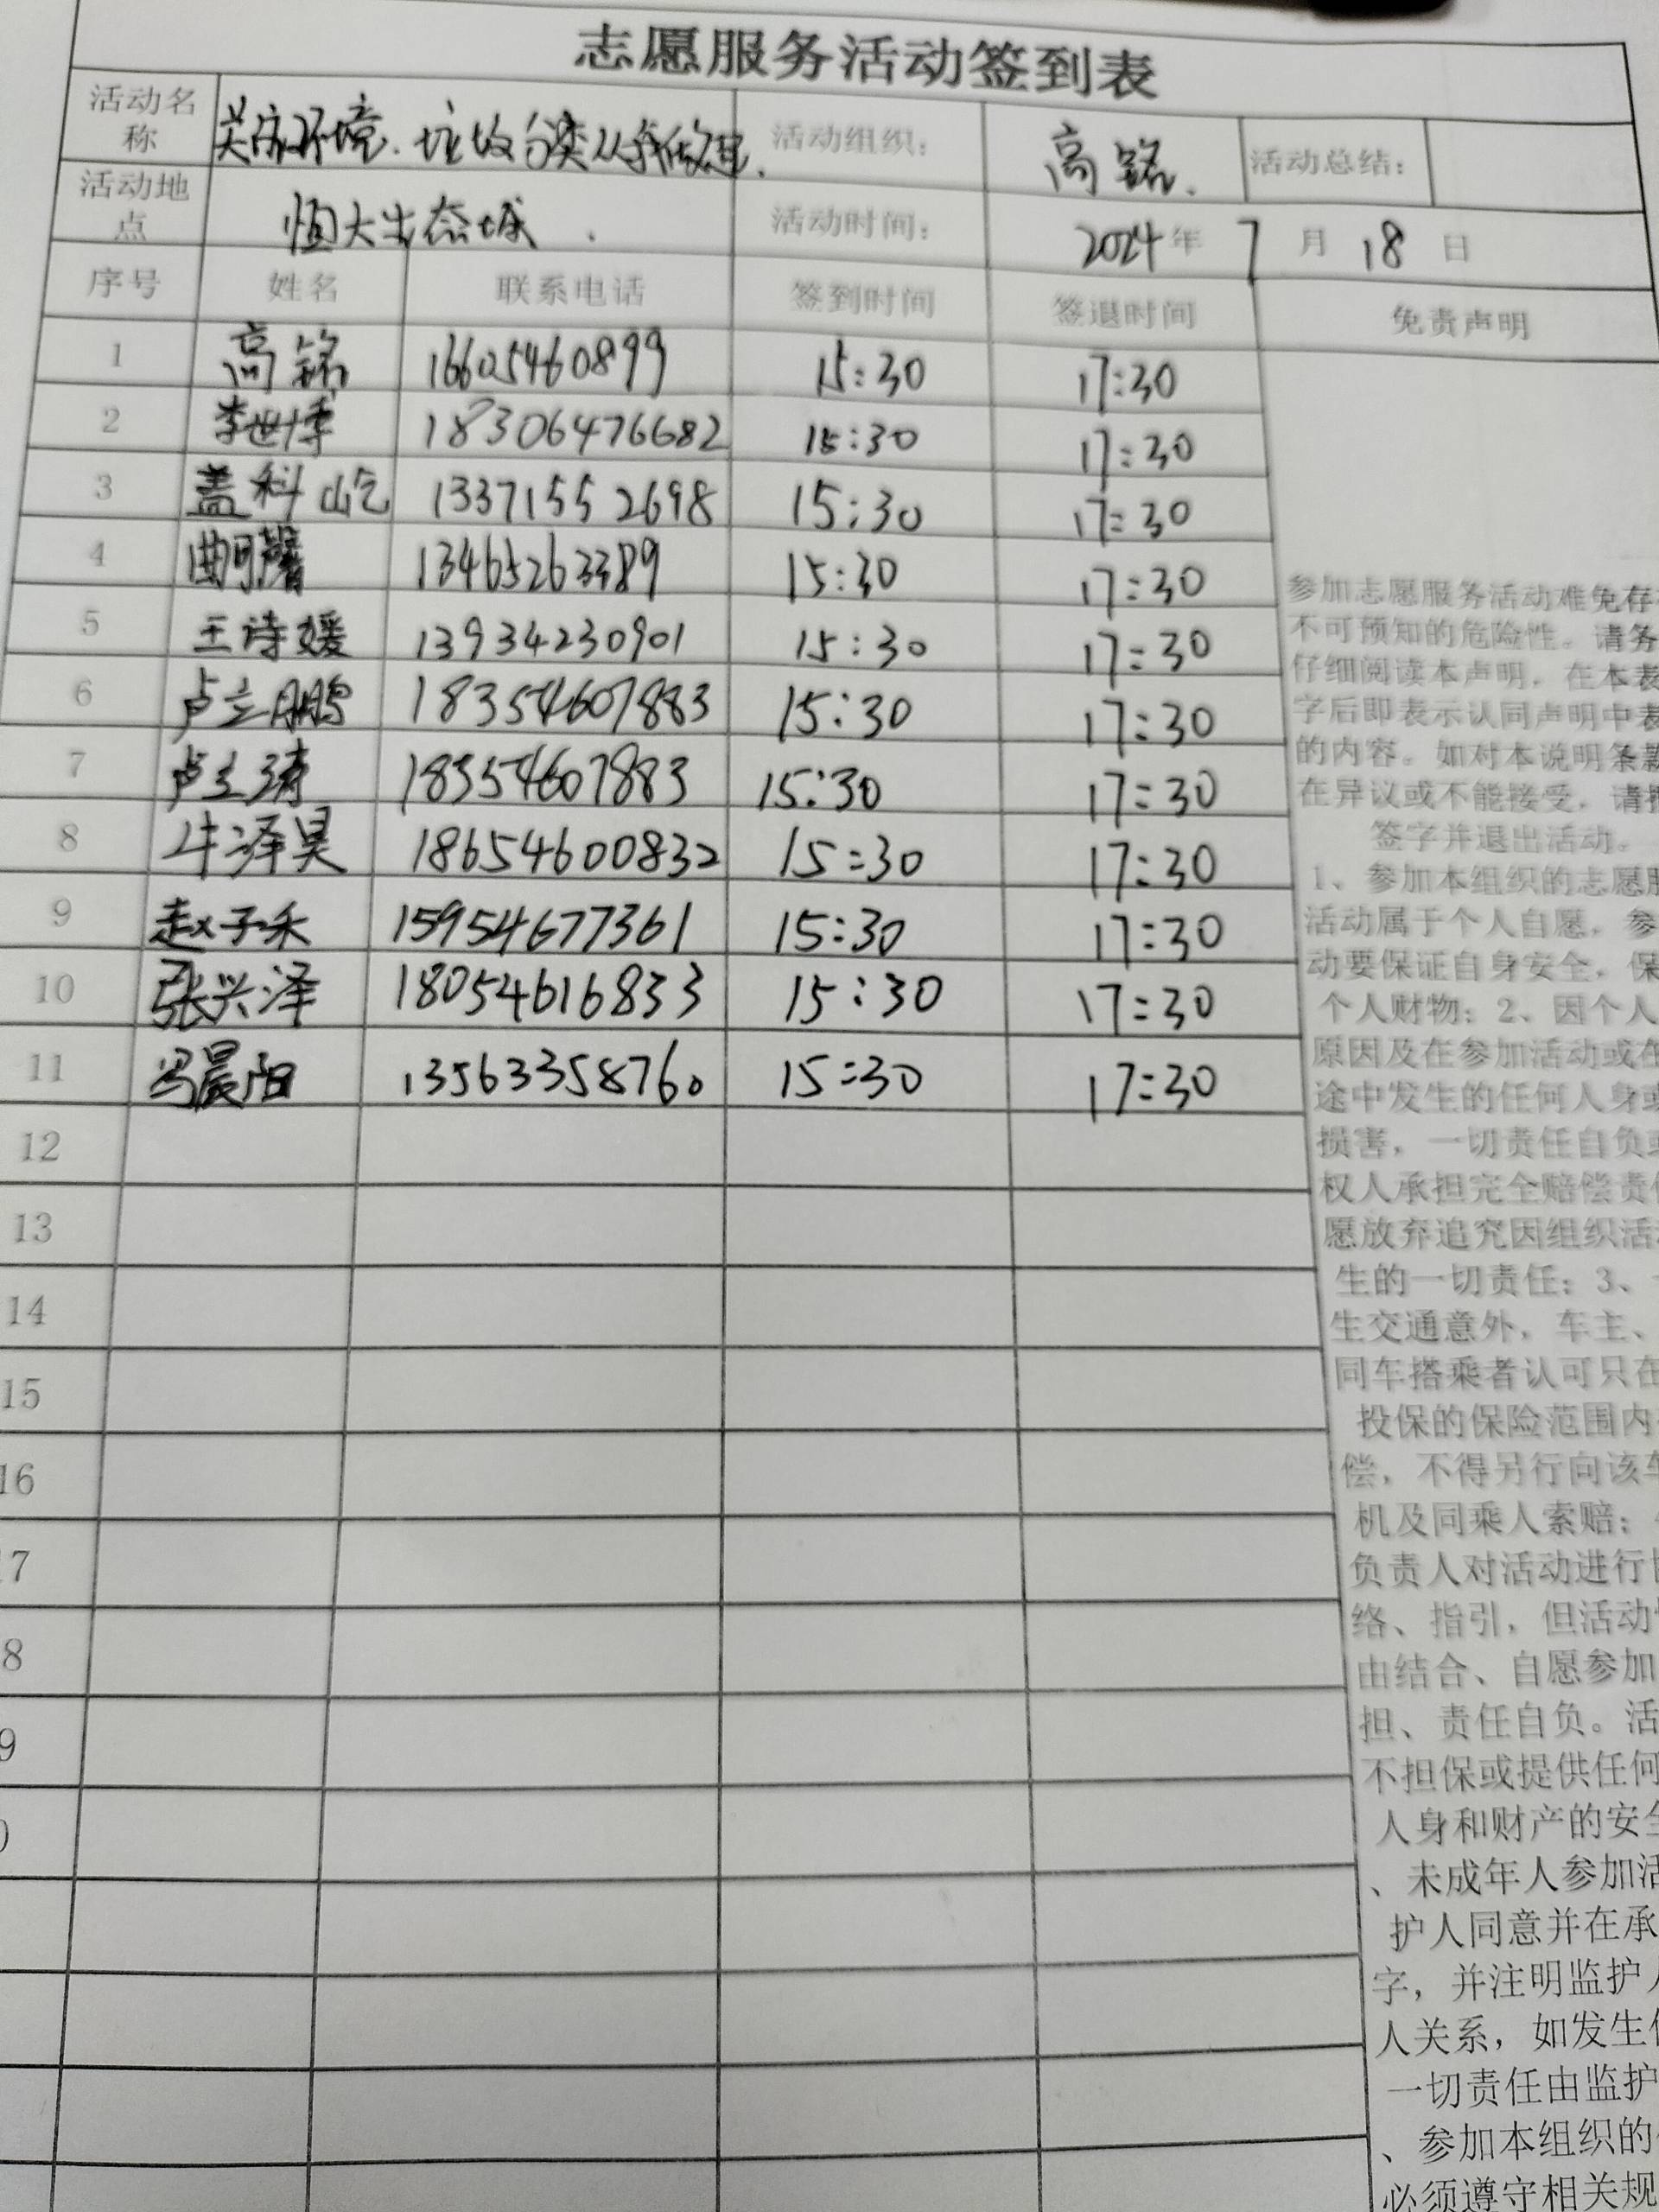 志愿服务活动签到表
活动名称 关放环境.垃圾分类从我做起. 活动组织: 高铭. 活动总结:
活动地点 恒大生态城. 活动时间: 2024年 7月 18日
序号 姓名 联系电话 签到时间 签退时间 免责声明
1 高铭 16605460899 15:30 17:30
2 李世博 18306476682 15:30 17:30
3 盖科屹 13371552698 15:30 17:30
4 曲馨 13465263389 15:30 17:30
5 王诗媛 13934230901 15:30 17:30
6 卢立鹏 18354607883 15:30 17:30
7 卢立 18354607883 15:30 17:30
8 牛泽昊 18654600832 15:30 17:30
9 赵子禾 15954677361 15:30 17:30
10 张兴泽 18054616833 15:30 17:30
11 冯晨阳 13563358760 15:30 17:30
12
13
14
15
16
17
8
9
参加志愿服务活动难免存
不可预知的危险性。请务
仔细阅读本声明,在本表
字后即表示认同声明中表
的内容。如对本说明条款
在异议或不能接受,请
签字并退出活动。
1、参加本组织的志愿服
活动属于个人自愿,参
动要保证自身安全,保
个人财物;2、因个人
原因及在参加活动或在
途中发生的任何人身或
损害,一切责任自负或
权人承担完全赔偿责任
愿放弃追究因组织活
生的一切责任;3、
生交通意外,车主、
同车搭乘者认可只在
投保的保险范围内
偿,不得另行向该车
机及同乘人索赔;
负责人对活动进行
络、指引,但活动
由结合、自愿参加
担、责任自负。活
不担保或提供任何
人身和财产的安全
、未成年人参加活
护人同意并在承
字,并注明监护人
人关系,如发生
一切责任由监护
、参加本组织的
必须遵守相关规